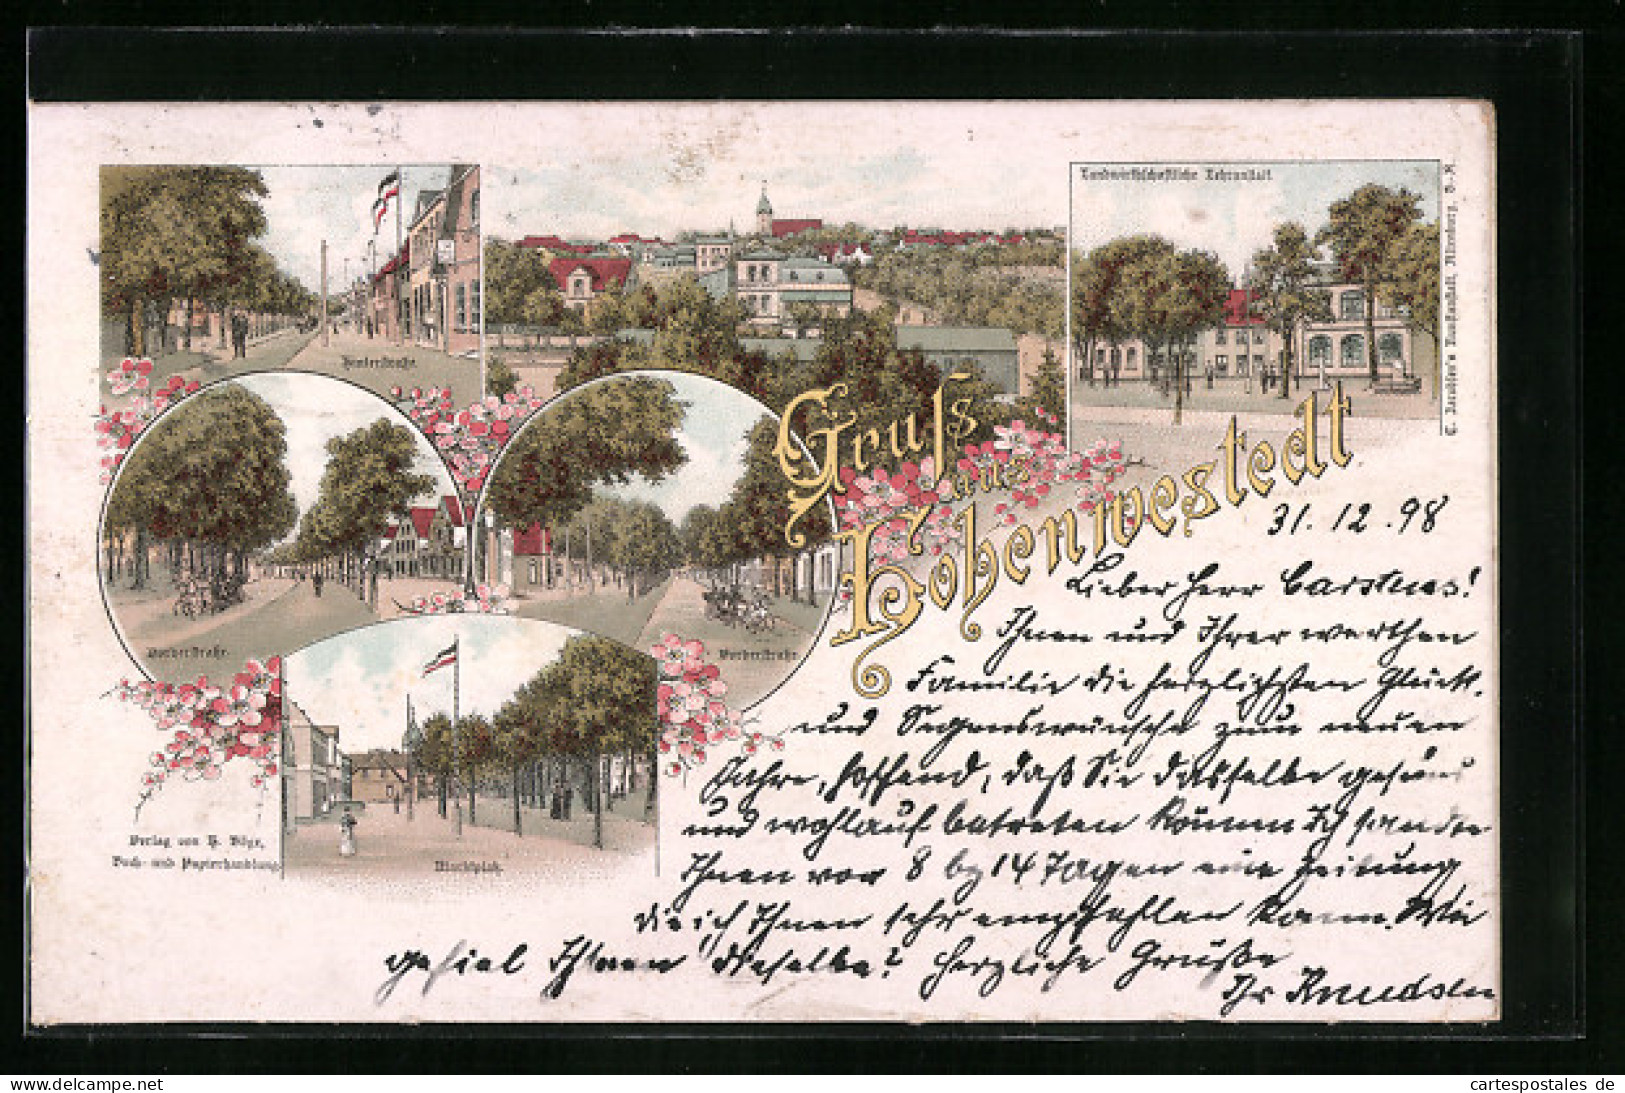 Landwirthschaftliche Lehranstalt.
Hinterstraße.
C. Jacobsen's Kunstanstalt, Altenburg, S.-A.
Gruß
aus
Hohenwestedt.
Vorderstraße.
Vorderstraße.
Marktplatz.
Verlag von H. Böge,
Buch- und Papierhandlung.
31.12.98
Lieber Herr Carstens!
Ihnen und Ihrer werthen
Familie die herzlichsten Glück-
und Segenswünsche zum neuen
Jahre, hoffend, daß Sie dasselbe gesund
und wohlauf betreten können Ich sandte
Ihnen vor 8 bis 14 Tagen eine Zeitung
die ich Ihnen sehr empfehlen kann. Wie
gefiel Ihnen dieselbe? Herzliche Grüße
Ihr Knudsen
ansichtskartenversand.com
cartespostales de